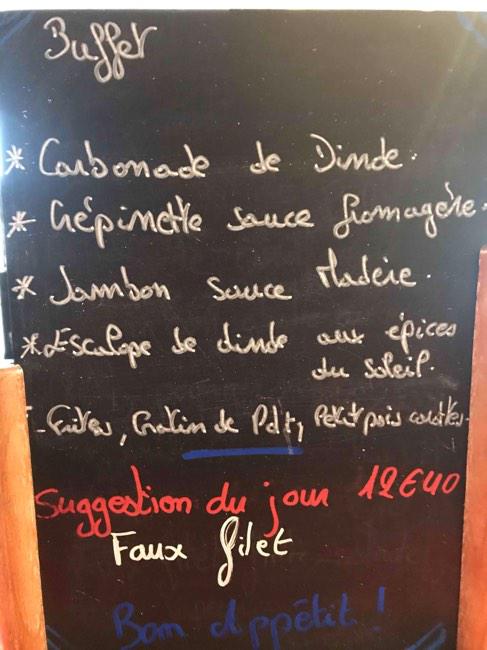 Buffet
* Carbonade de Dinde.
* Crépinette sauce fromagère.
* Jambon sauce Madère.
* Escalope de dinde aux épices
du soleil.
- Frites, Gratin de Pdt, Petit pois carottes.
Suggestion du jour 12€40
Faux filet
Bon Appétit !